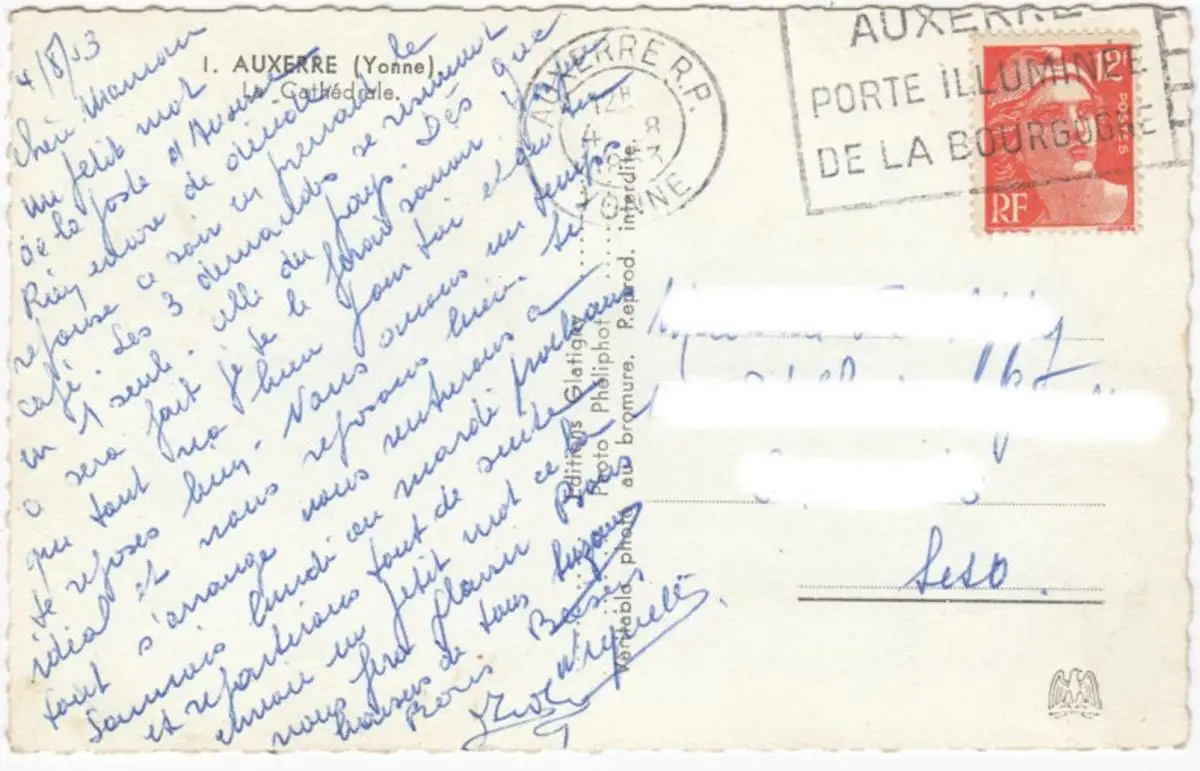 4/8/53
I. AUXERRE (Yonne)
La Cathédrale.
Chère Maman
un petit mot
de la poste d'Auxerre
Rien encore de décidé
réponse ce soir en prenant le
café. Les 3 demandes se résument
en 1 seule. celle du pays. Dès que
ce sera fait je te le ferai savoir
que tout va bien pour toi et que tu
te reposes bien. Nous avons un temps
idéal et nous reposons bien. Si
tout s'arrange nous rentrerons à
lundi ou mardi prochain
et repartirons tout de suite
un petit mot
nous fera plaisir Bons
baisers de tous
Baisers
AUXERRE R.P.
12H
4 8
YONNE
AUXERRE
PORTE ILLUMINÉE
DE LA BOURGOGNE
12F
POSTES
RF
Editions Glatigny
Photo Phéliphot
Véritable photo au bromure. Reprod. interdite.